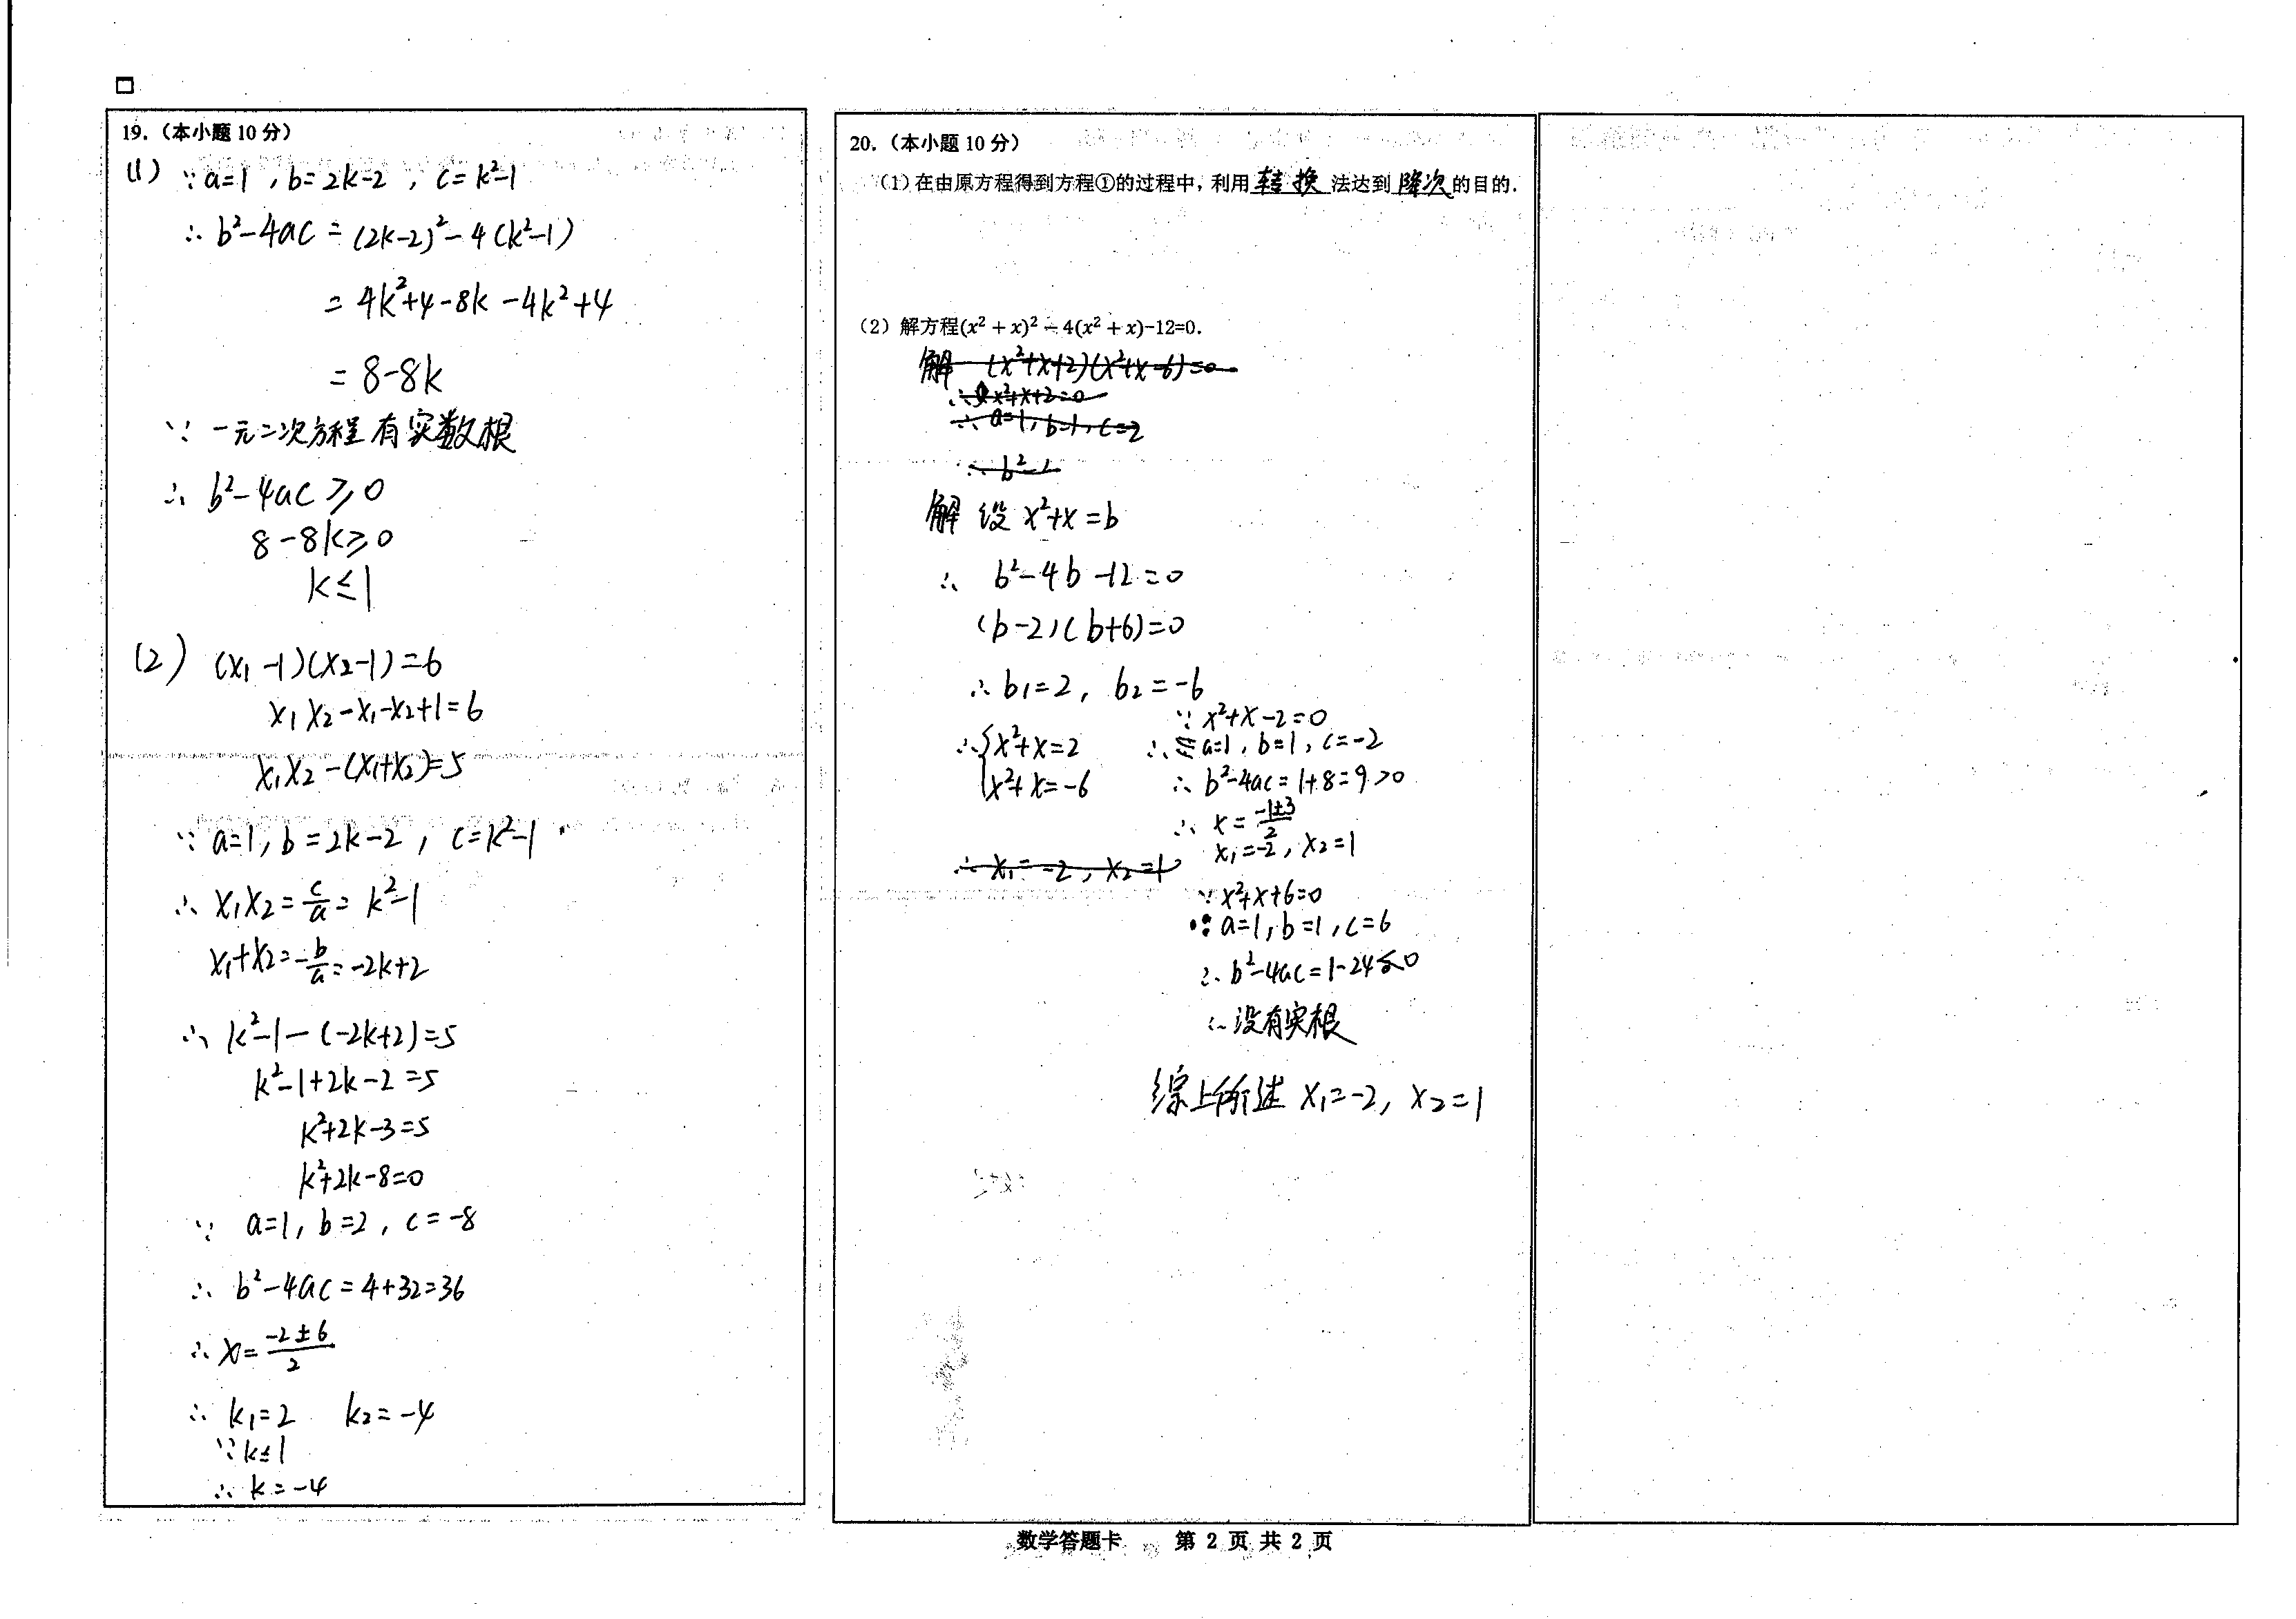 19.（本小题 10 分）
(1) ∵ a=1 , b=2k-2 , c=k²-1
∴ b²-4ac = (2k-2)²-4(k²-1)
= 4k²+4-8k-4k²+4
= 8-8k
∵ 一元二次方程有实数根
∴ b²-4ac ≥ 0
8-8k≥0
k≤1
(2) (x₁-1)(x₂-1)=6
x₁x₂-x₁-x₂+1=6
x₁x₂-(x₁+x₂)=5
∵ a=1, b=2k-2, c=k²-1
∴ x₁x₂=c/a=k²-1
x₁+x₂=-b/a=-2k+2
∴ k²-1-(-2k+2)=5
k²-1+2k-2=5
k²+2k-3=5
k²+2k-8=0
∵ a=1, b=2, c=-8
∴ b²-4ac=4+32=36
∴ x=(-2±6)/2
∴ k₁=2 k₂=-4
∵ k≤1
∴ k=-4
20.（本小题 10 分）
（1）在由原方程得到方程①的过程中，利用 转换 法达到 降次 的目的.
（2）解方程(x² + x)² − 4(x² + x)−12=0.
解 (x²+x+2)(x²+x-6)=0
∴ x²+x+2=0
∴ a=1, b=1, c=2
∴ b²-
解 设 x²+x=b
∴ b²-4b-12=0
(b-2)(b+6)=0
∴ b₁=2, b₂=-6
∴ {x²+x=2
x²+x=-6
∴ x₁=-2, x₂=1
∵ x²+x-2=0
∴ a=1, b=1, c=-2
∴ b²-4ac=1+8=9>0
∴ x=(-1±3)/2
x₁=-2, x₂=1
∵ x²+x+6=0
∵ a=1, b=1, c=6
∴ b²-4ac=1-24<0
∴ 没有实根
综上所述 x₁=-2, x₂=1
数学答题卡 第 2 页 共 2 页